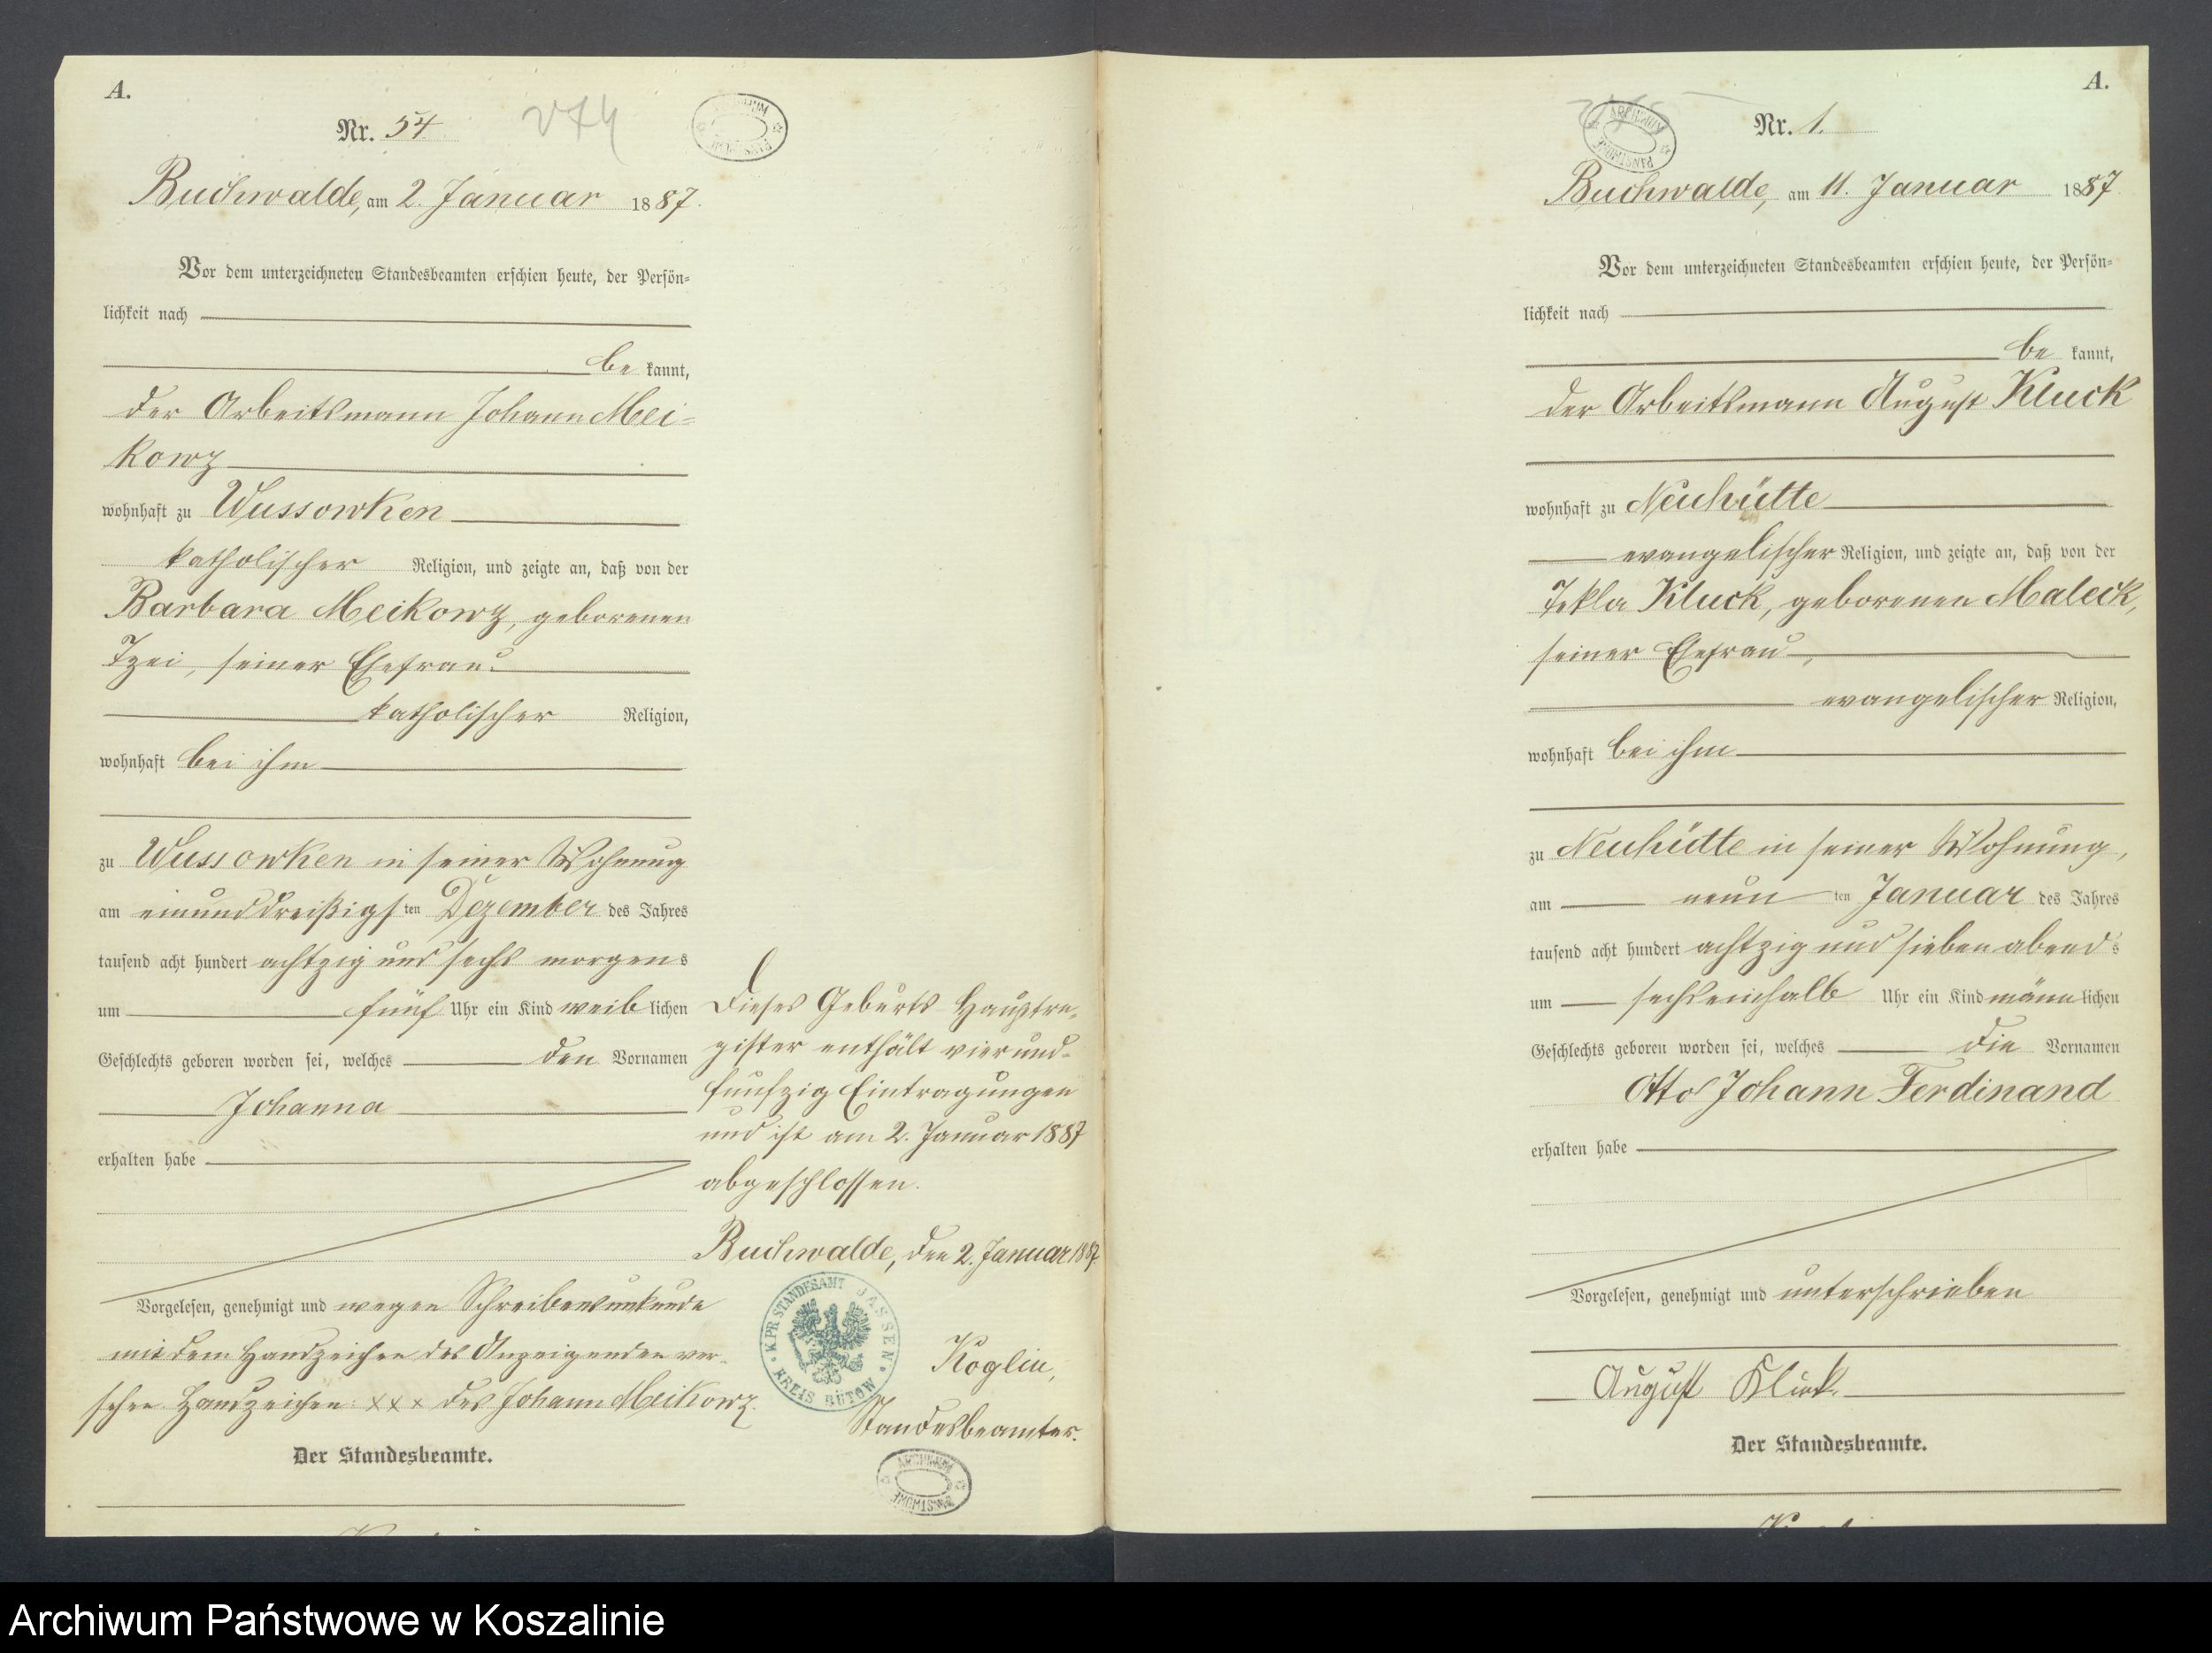 A.
Nr. 54
Buchwalde, am 2. Januar 1887.
Vor dem unterzeichneten Standesbeamten erschien heute, der Persön-
lichkeit nach
be kannt,
der Arbeitsmann Johann Mei-
kowz
wohnhaft zu Wussowken
katholischer Religion, und zeigte an, daß von der
Barbara Meikowz, geborenen
seiner Ehefrau
katholischer Religion,
wohnhaft bei ihm
zu Wussowken in seiner Wohnung
am einunddreißigsten Dezember des Jahres
tausend acht hundert achtzig und sechs morgens
um fünf Uhr ein Kind weiblichen
Geschlechts geboren worden sei, welches den Vornamen
Johanna
erhalten habe
Vorgelesen, genehmigt und wegen Schreibensunkunde
mit dem Handzeichen des Anzeigenden ver-
sehen. Handzeichen: xxx des Johann Meikowz.
Der Standesbeamte.
Dieses Geburts Hauptre-
gister enthält vierund-
funfzig Eintragungen
und ist am 2. Januar 1887
abgeschlossen.
Buchwalde, den 2. Januar 1887.
KPR STANDESAMT JASSEN
KREIS BÜTOW
Köglin,
Standesbeamter.
ARCHIWUM PAŃSTWOWE
A.
Nr. 1.
Buchwalde, am 11. Januar 1887
Vor dem unterzeichneten Standesbeamten erschien heute, der Persön-
lichkeit nach
be kannt,
der Arbeitsmann August Kluck
wohnhaft zu Neuhütte
evangelischer Religion, und zeigte an, daß von der
Tekla Kluck, geborenen Maleck,
seiner Ehefrau,
evangelischer Religion,
wohnhaft bei ihm
zu Neuhütte in seiner Wohnung,
am neun ten Januar des Jahres
tausend acht hundert achtzig und sieben abends
um sechseinhalb Uhr ein Kind männlichen
Geschlechts geboren worden sei, welches die Vornamen
Otto Johann Ferdinand
erhalten habe
Vorgelesen, genehmigt und unterschrieben
August Kluck
Der Standesbeamte.
Archiwum Państwowe w Koszalinie